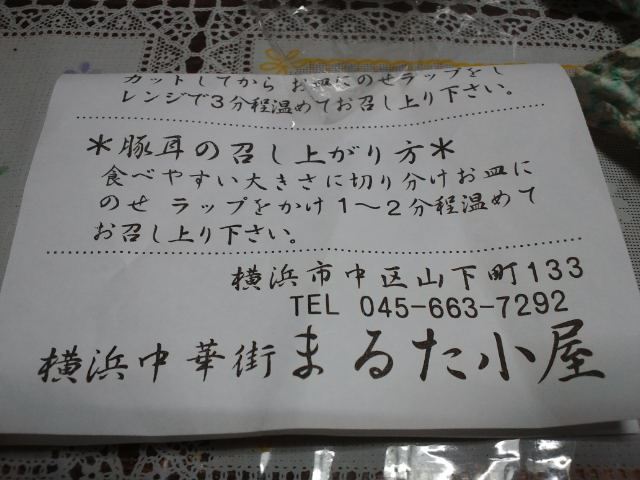 カットしてから お皿にのせラップをし
レンジで3分程温めてお召し上り下さい。
＊豚耳の召し上がり方＊
食べやすい大きさに切り分けお皿に
のせ ラップをかけ1〜2分程温めて
お召し上り下さい。
横浜市中区山下町133
TEL 045-663-7292
横浜中華街まるた小屋